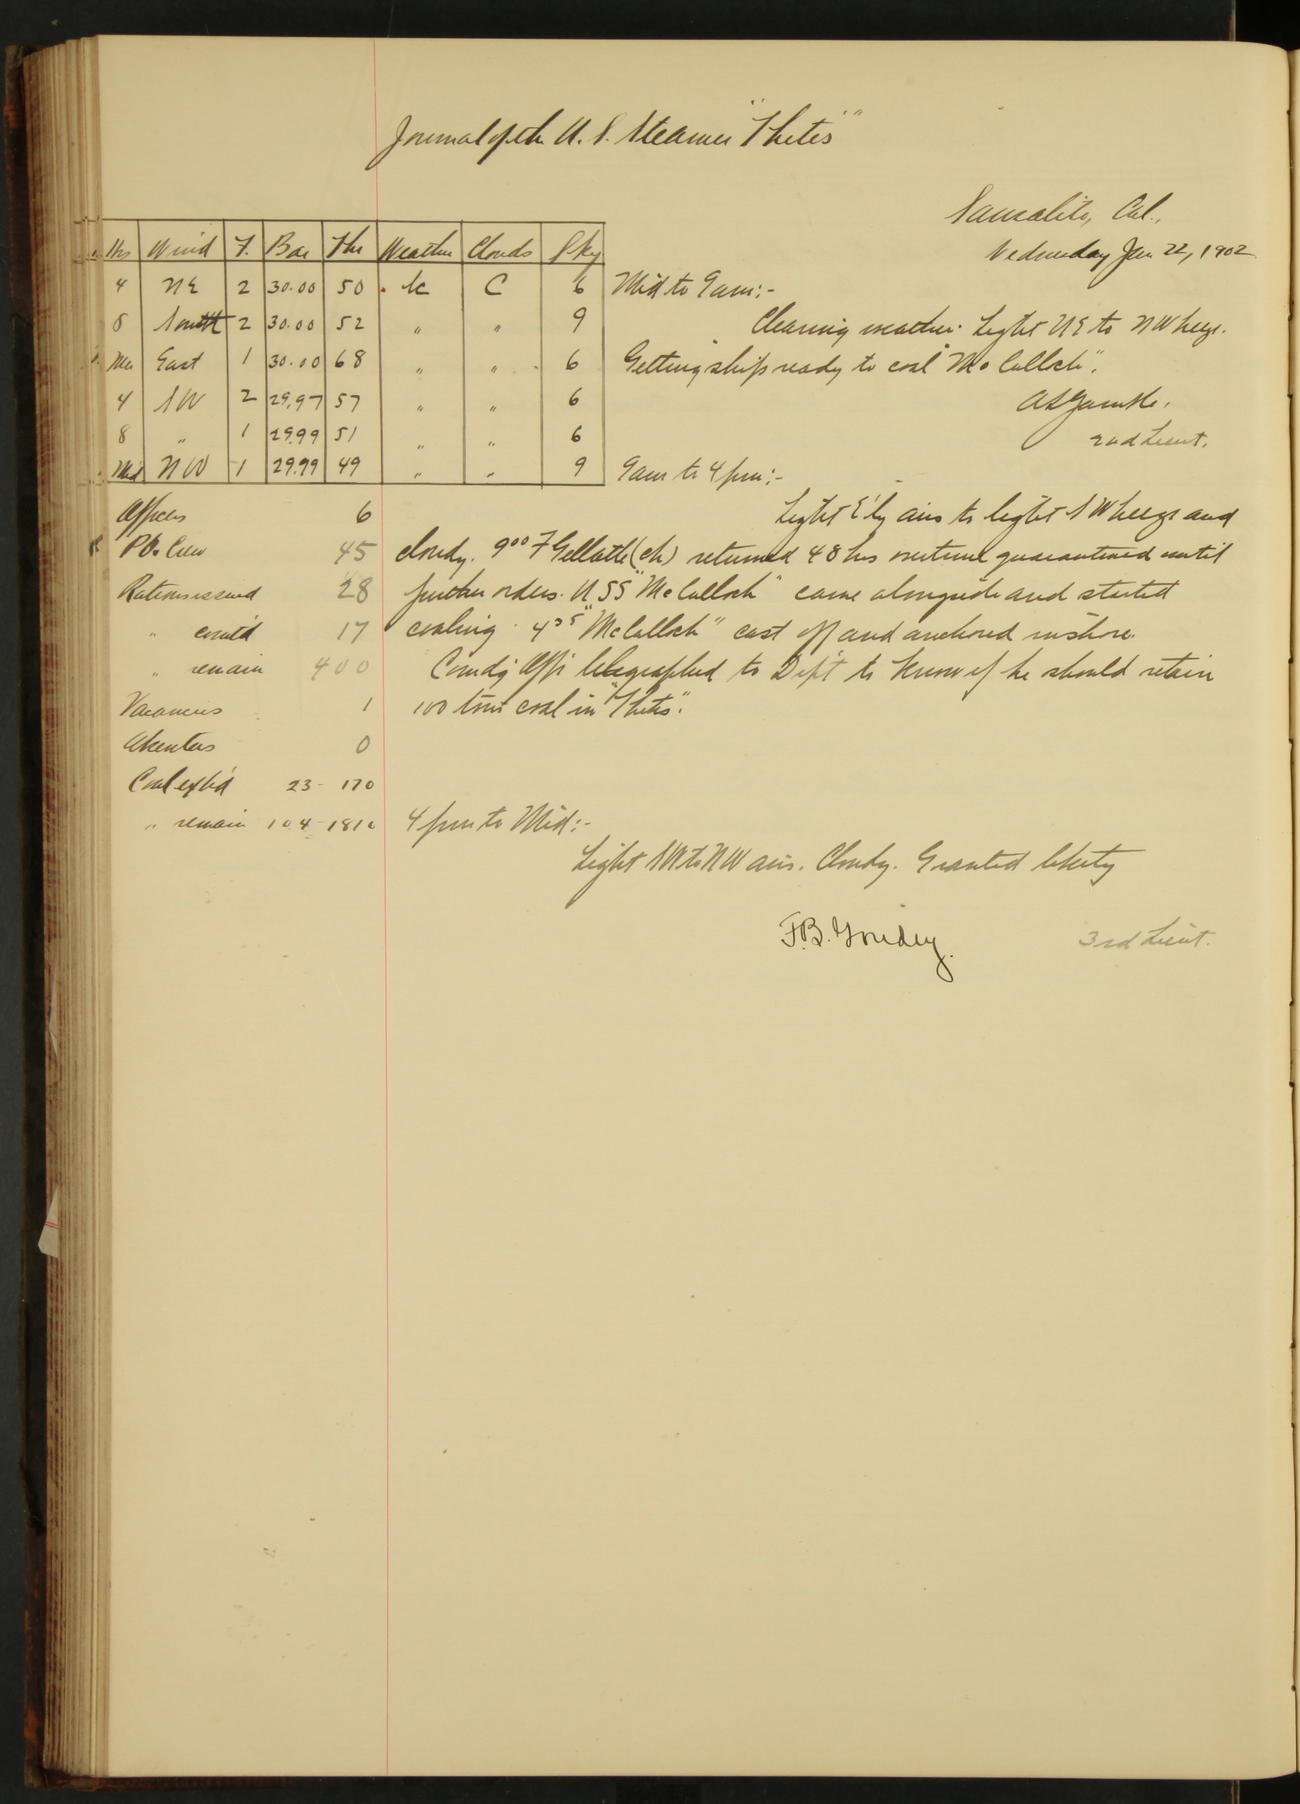 Journal of the U. S. Steamer "Thetis"
Sausalito, Cal.,
Wednesday Jan 22, 1902.
Hrs Wind F. Bar Thr Weather Clouds Sky
4 NE 2 30.00 50 bc C 6
8 South 2 30.00 52 " " 9
Mer East 1 30.00 68 " " 6
4 SW 2 29.97 57 " " 6
8 " 1 29.99 51 " " 6
Mid NW 1 29.99 49 " " 9
Mid to 9 am:-
Clearing weather. Light NE to NW breeze.
Getting ship ready to coal "McCulloch".
2nd Lieut.
9 am to 4 pm:-
Light E'ly airs to light SW breeze and
cloudy. 9⁰⁰ F (ck) returned 48 hrs overtime quarantined until
further orders. U.S.S "McCulloch" came alongside and started
coaling. 4³⁵ "McCulloch" cast off and anchored inshore.
Comdg Offr telegraphed to Dep't to know if he should retain
100 tons coal in "Thetis".
Officers 6
P.O. & Crew 45
Rations issued 28
" com't'd 17
" remain 400
Vacancies 1
Absentees 0
Coal exp'd 23 - 170
" remain 104 - 1810
4 pm to Mid:-
Light SW to NW airs. Cloudy. Granted liberty
F.B. Goudey. 3rd Lieut.